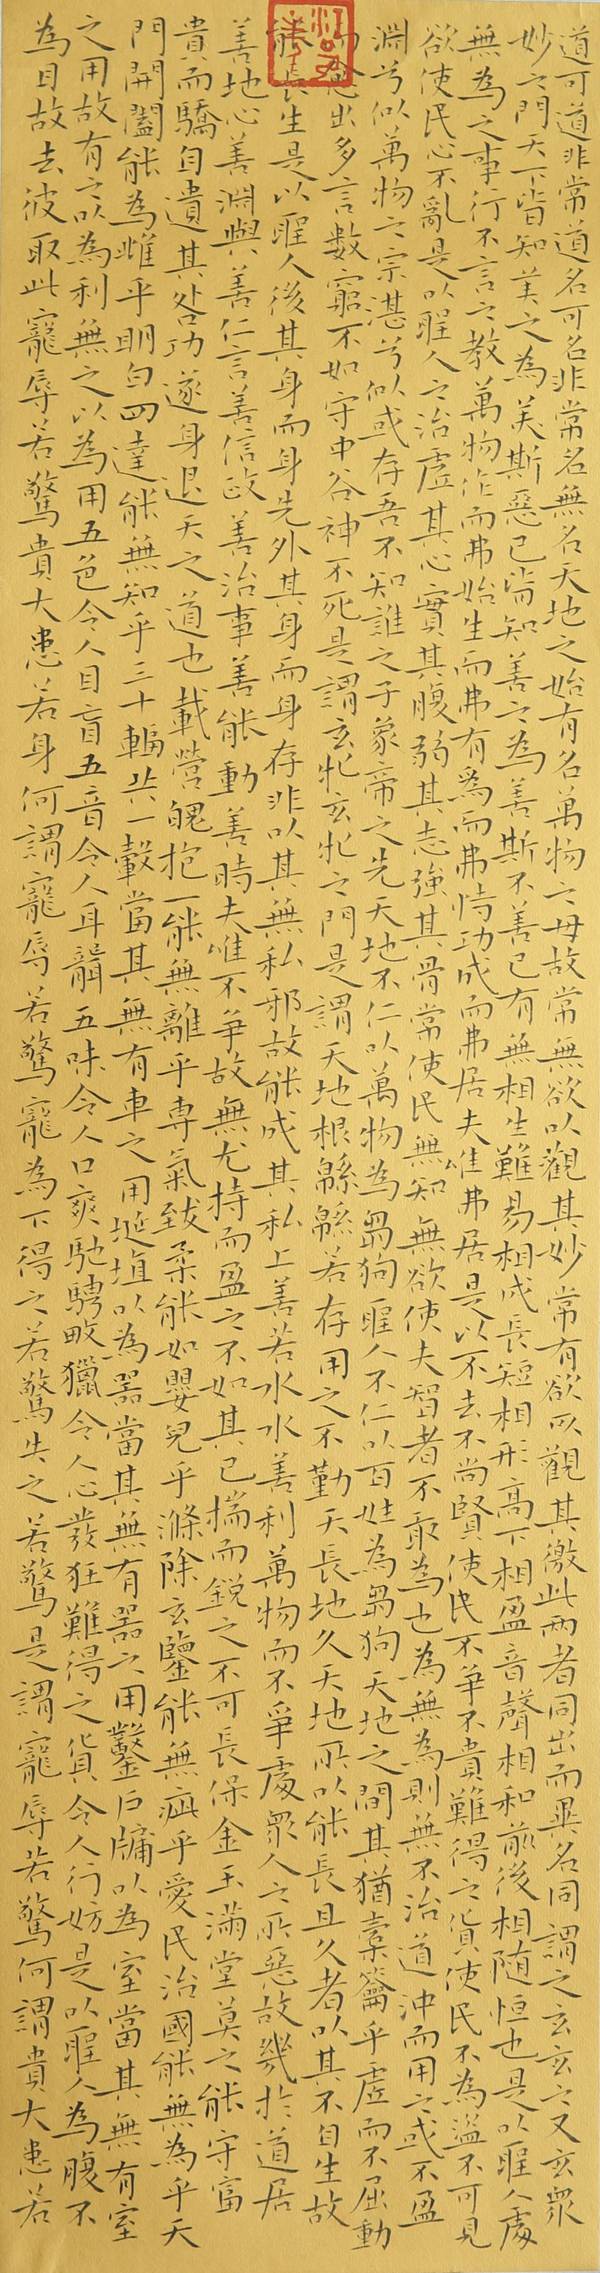 道可道非常道名可名非常名無名天地之始有名萬物之母故常無欲以觀其妙常有欲以觀其徼此兩者同出而異名同謂之玄玄之又玄眾
妙之門天下皆知美之為美斯惡已皆知善之為善斯不善已有無相生難易相成長短相形高下相盈音聲相和前後相隨恒也是以聖人處
無為之事行不言之教萬物作而弗始生而弗有為而弗恃功成而弗居夫唯弗居是以不去不尚賢使民不爭不貴難得之貨使民不為盜不可見
欲使民心不亂是以聖人之治虛其心實其腹弱其志強其骨常使民無知無欲使夫智者不敢為也為無為則無不治道沖而用之或不盈
淵兮似萬物之宗湛兮似或存吾不知誰之子象帝之先天地不仁以萬物為芻狗聖人不仁以百姓為芻狗天地之間其猶橐籥乎虛而不屈動
而愈出多言數窮不如守中谷神不死是謂玄牝玄牝之門是謂天地根緜緜若存用之不勤天長地久天地所以能長且久者以其不自生故
能長生是以聖人後其身而身先外其身而身存非以其無私邪故能成其私上善若水水善利萬物而不爭處眾人之所惡故幾於道居
善地心善淵與善仁言善信政善治事善能動善時夫唯不爭故無尤持而盈之不如其已揣而銳之不可長保金玉滿堂莫之能守富
貴而驕自遺其咎功遂身退天之道也載營魄抱一能無離乎專氣致柔能如嬰兒乎滌除玄鑒能無疵乎愛民治國能無為乎天
門開闔能為雌乎明白四達能無知乎三十輻共一轂當其無有車之用埏埴以為器當其無有器之用鑿戶牖以為室當其無有室
之用故有之以為利無之以為用五色令人目盲五音令人耳聾五味令人口爽馳騁畋獵令人心發狂難得之貨令人行妨是以聖人為腹不
為目故去彼取此寵辱若驚貴大患若身何謂寵辱若驚寵為下得之若驚失之若驚是謂寵辱若驚何謂貴大患若